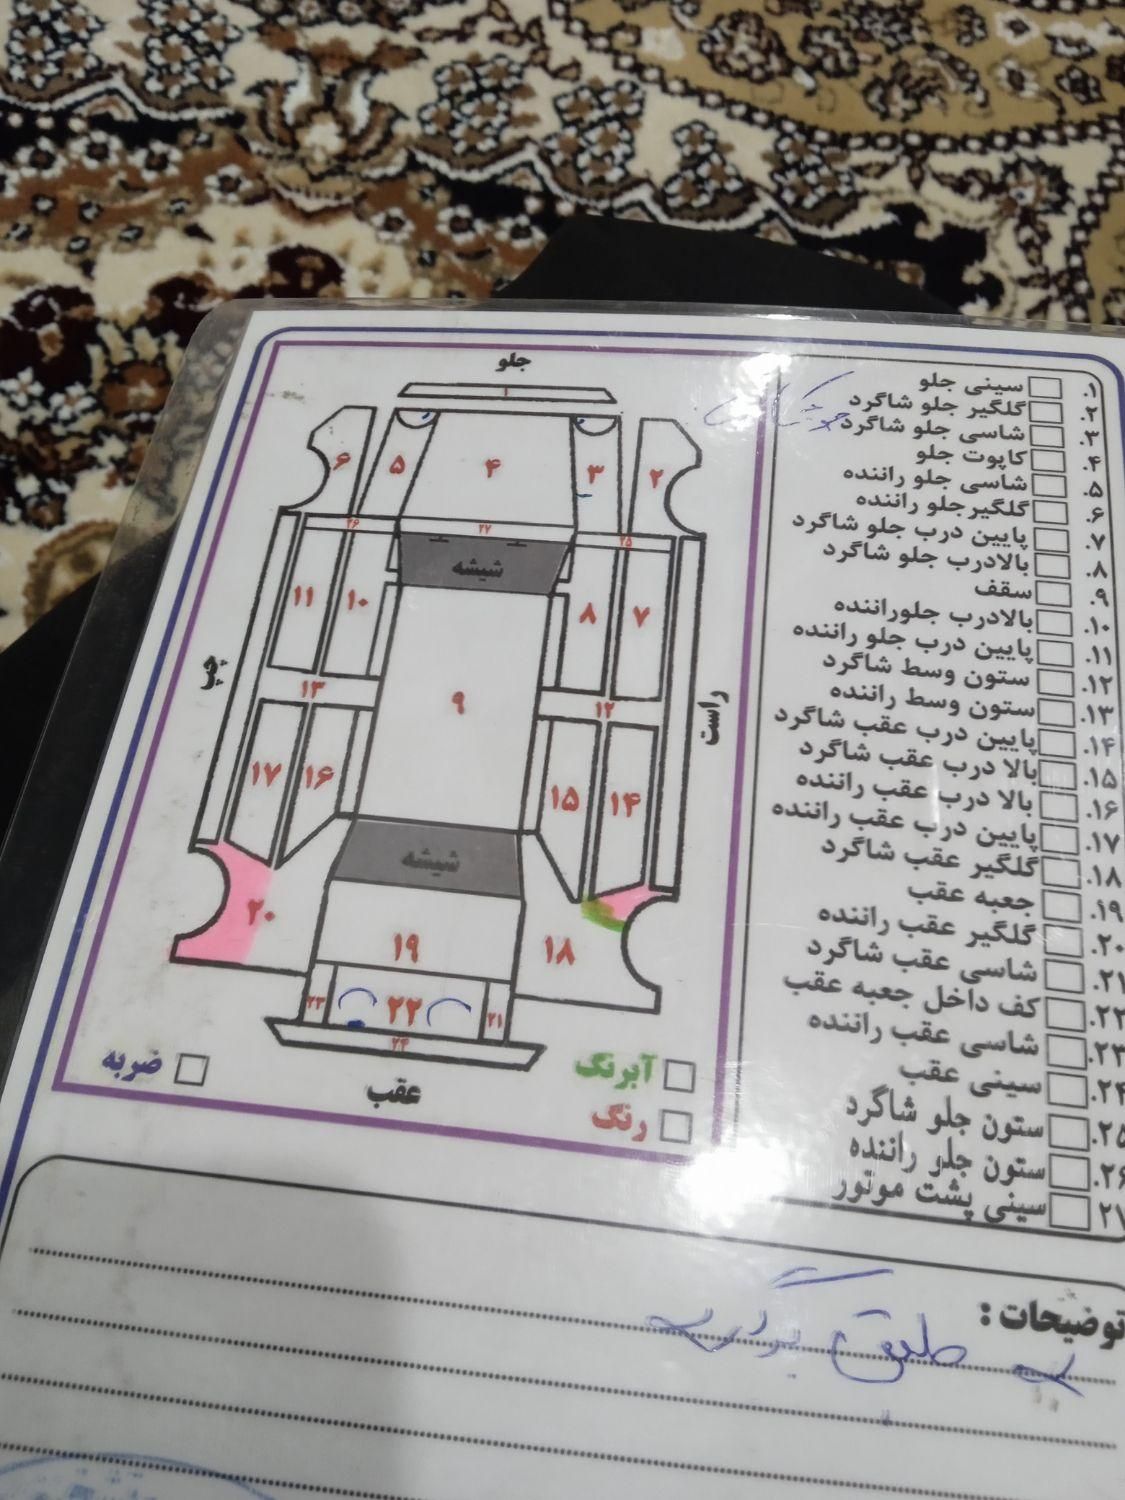 جلو
۱
۶ ۵ ۴ ۳ ۲
۲۶ ۲۷ ۲۵
شیشه
۱۱ ۱۰ ۸ ۷
چپ
راست
۱۳ ۹ ۱۲
۱۷ ۱۶ ۱۵ ۱۴
شیشه
۲۰ ۱۹ ۱۸
۲۳ ۲۲ ۲۱
۲۴
عقب
ضربه
آبرنگ
رنگ
۱. سینی جلو
۲. گلگیر جلو شاگرد
۳. شاسی جلو شاگرد
۴. کاپوت جلو
۵. شاسی جلو راننده
۶. گلگیرجلو راننده
۷. پایین درب جلو شاگرد
۸. بالادرب جلو شاگرد
۹. سقف
۱۰. بالادرب جلوراننده
۱۱. پایین درب جلو راننده
۱۲. ستون وسط شاگرد
۱۳. ستون وسط راننده
۱۴. پایین درب عقب شاگرد
۱۵. بالا درب عقب شاگرد
۱۶. بالا درب عقب راننده
۱۷. پایین درب عقب راننده
۱۸. گلگیر عقب شاگرد
۱۹. جعبه عقب
۲۰. گلگیر عقب راننده
۲۱. شاسی عقب شاگرد
۲۲. کف داخل جعبه عقب
۲۳. شاسی عقب راننده
۲۴. سینی عقب
۲۵. ستون جلو شاگرد
۲۶. ستون جلو راننده
۲۷ سینی پشت موتور
توضیحات :